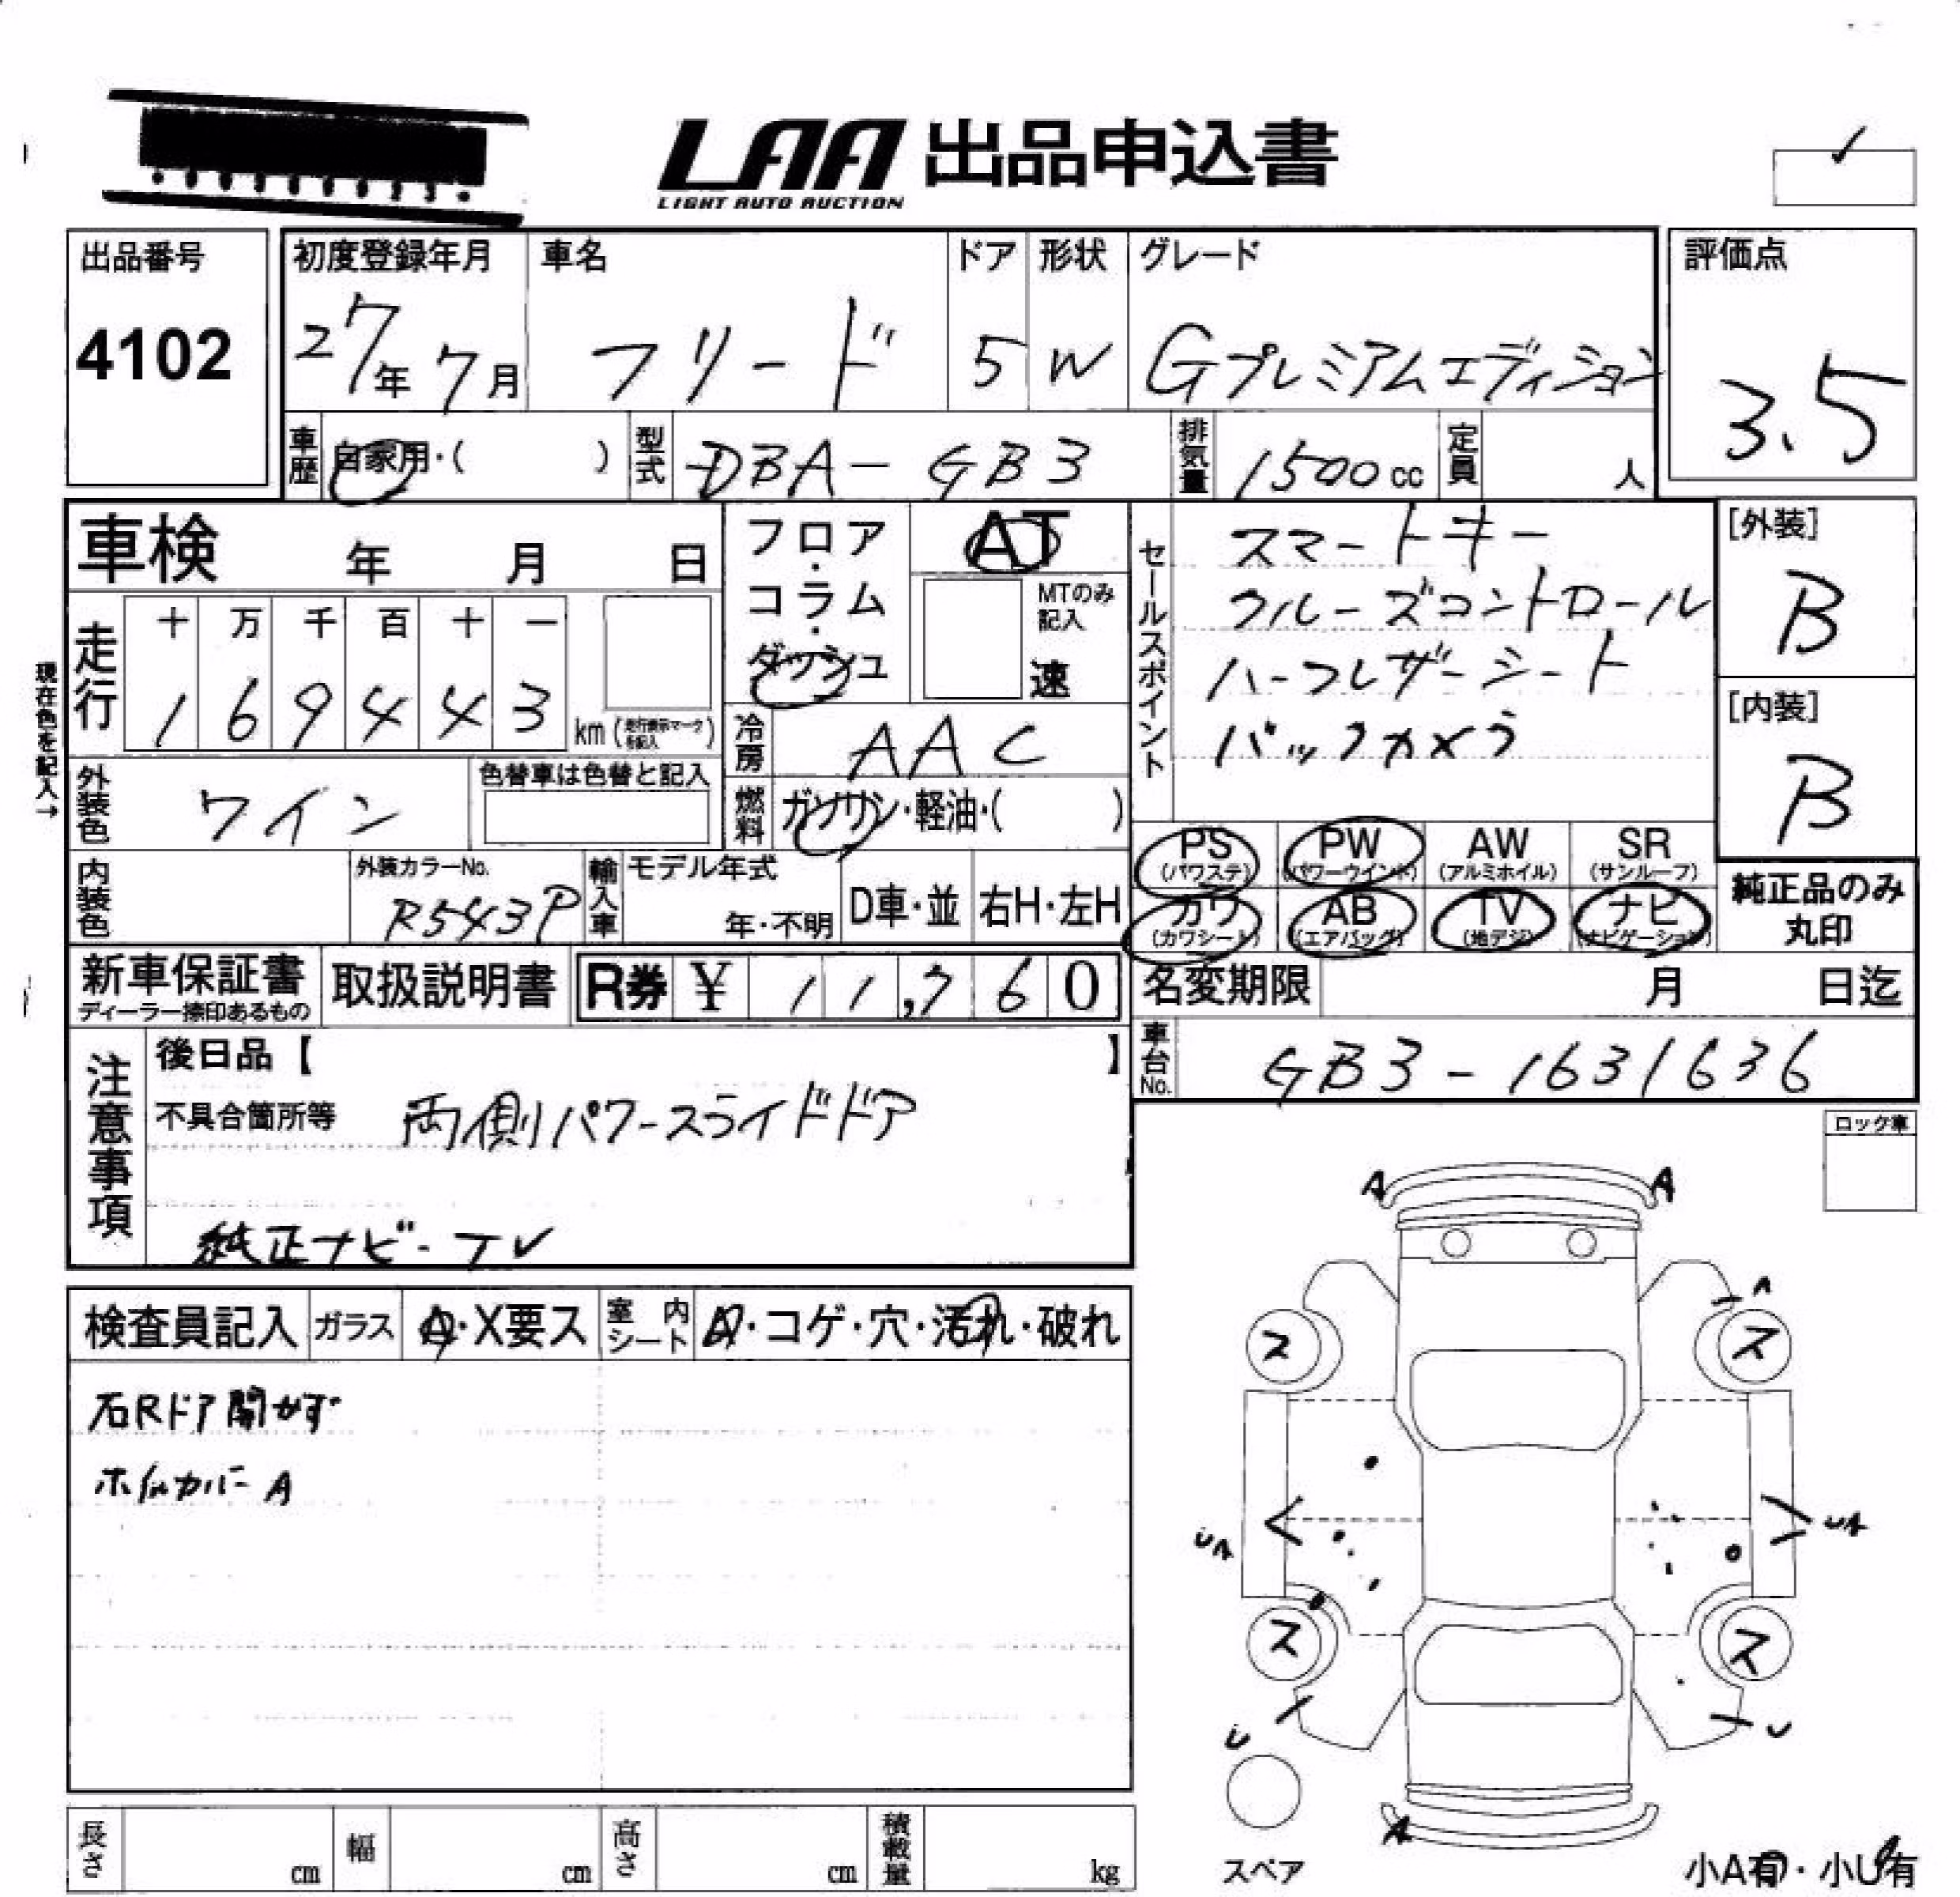 LAA 出品申込書
LIGHT AUTO AUCTION
出品番号
4102
初度登録年月 車名 ドア 形状 グレード
27年 7月 フリード 5 W Gプレミアムエディション
評価点
3.5
車歴 自家用・( ) 型式 DBA-GB3 排気量 1500cc 定員 人
車検 年 月 日
フロア・コラム・ダッシュ
AT
MTのみ記入
速
セールスポイント
スマートキー
クルーズコントロール
ハーフレザーシート
バックカメラ
[外装]
B
[内装]
B
現在色を記入→
走行 十 万 千 百 十 一
1 6 9 4 4 3 km (走行表示マークを記入)
冷房 AAC
外装色 ワイン 色替車は色替と記入
燃料 ガソリン・軽油・( )
内装色 外装カラーNo. R543P
輸入車 モデル年式 年・不明 D車・並 右H・左H
PS (パワステ) PW (パワーウインド) AW (アルミホイル) SR (サンルーフ)
カワ (カワシート) AB (エアバッグ) TV (地デジ) ナビ (ナビゲーション)
純正品のみ丸印
新車保証書 ディーラー捺印あるもの
取扱説明書
R券 ¥ 11,760
名変期限 月 日迄
車台No. GB3-1631636
注意事項
後日品【 】
不具合箇所等 両側パワースライドドア
純正ナビ-TV
ロック車
検査員記入 ガラス A・X要ス 室内シート A・コゲ・穴・汚れ・破れ
右Rドア開かず
ホイルカバーA
A A
A
ス ス
UA UA
ス ス
U U
A
スペア
小A有・小U有
長さ cm 幅 cm 高さ cm 積載量 kg